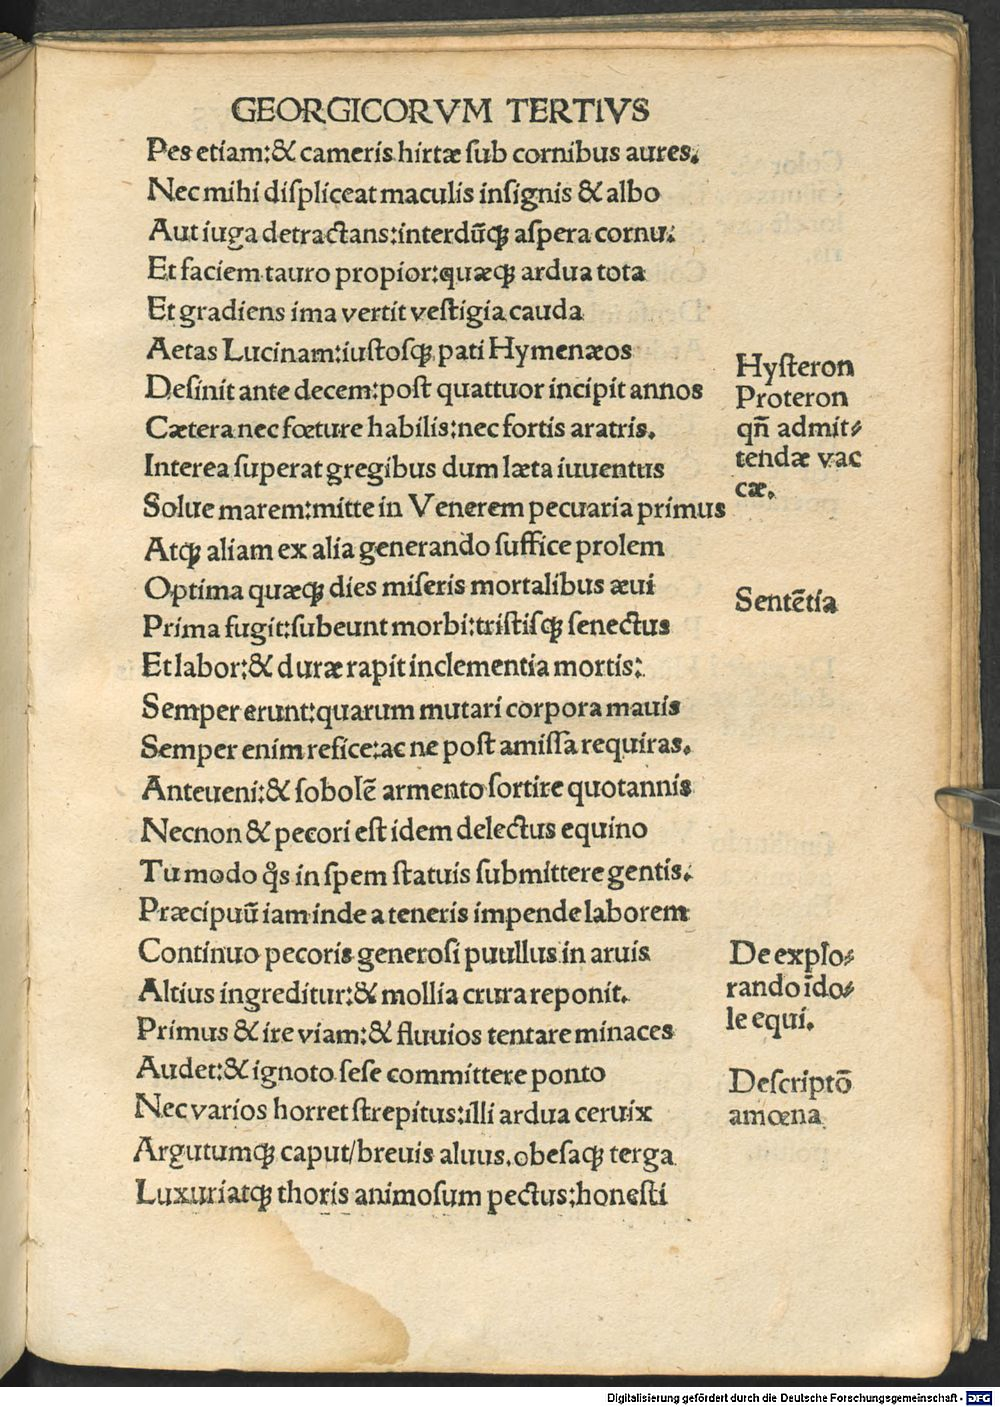 GEORGICORVM TERTIVS
Pes etiam:& cameris hirtæ ſub cornibus aures.
Nec mihi diſpliceat maculis inſignis & albo
Aut iuga detractans:interdūꝙ aſpera cornu:
Et faciem tauro propior:quæꝙ ardua tota
Et gradiens ima vertit veſtigia cauda
Aetas Lucinam:iuſtoſꝙ pati Hymenæos
Deſinit ante decem:poſt quattuor incipit annos
Cætera nec fœture habilis:nec fortis aratris.
Interea ſuperat gregibus dum læta iuuentus
Solue marem:mitte in Venerem pecuaria primus
Atꝙ aliam ex alia generando ſuffice prolem
Optima quæꝙ dies miſeris mortalibus æui
Prima fugit:ſubeunt morbi:triſtiſꝙ ſenectus
Et labor:& duræ rapit inclementia mortis:
Semper erunt:quarum mutari corpora mauis
Semper enim refice:ac ne poſt amiſſa requiras.
Anteueni:& ſobolē armento ſortire quotannis
Necnon & pecori eſt idem delectus equino
Tu modo q̄s in ſpem ſtatuis ſubmittere gentis:
Præcipuū iam inde a teneris impende laborem
Continuo pecoris generoſi puullus in aruis
Altius ingreditur:& mollia crura reponit.
Primus & ire viam:& fluuios tentare minaces
Audet:& ignoto ſeſe committere ponto
Nec varios horret ſtrepitus:illi ardua ceruix
Argutumꝙ caput/breuis aluus.obeſaꝙ terga
Luxuriatꝙ thoris animoſum pectus:honeſti
Hyſteron
Proteron
qn̄ admit⸗
tendæ vac
cæ.
Sentētia
De explo⸗
rando īdo⸗
le equi.
Deſcriptō
amœna
Digitalisierung gefördert durch die Deutsche Forschungsgemeinschaft - DFG